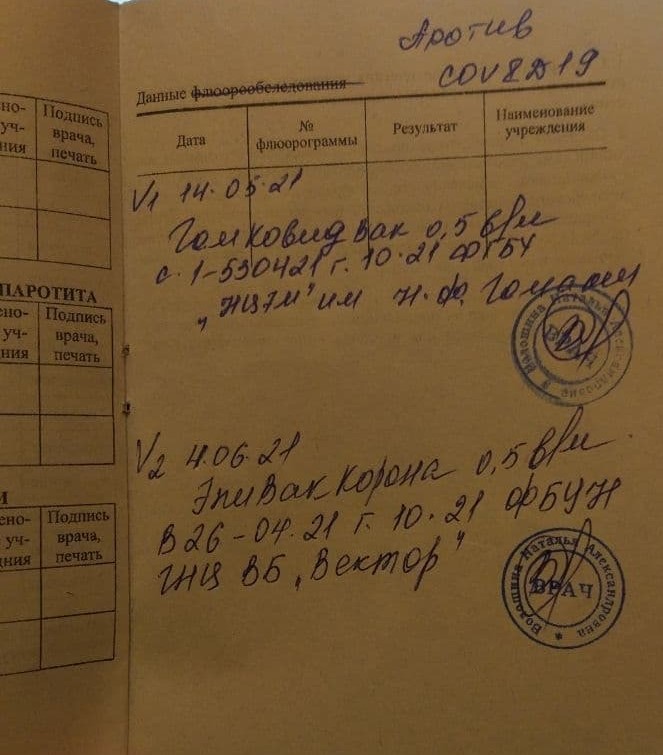 Против
COVID19
Данные флюорообследования
Дата
№
флюорограммы
Результат
Наименование
учреждения
V1 14.05.21
Гамковидвак 0,5 в/м
с. 1-530421 г. 10.21 ФГБУ
им Н.Ф. Гамалеи
Волошина Наталья Александровна
ВРАЧ
V2 4.06.21
ЭпиВакКорона 0,5 в/м
В26-04.21 г. 10.21 ФБУН
ГНЦ ВБ „Вектор"
Волошина Наталья Александровна
ВРАЧ
но-
уч-
ния
Подпись
врача,
печать
ПАРОТИТА
ено-
уч-
ния
Подпись
врача,
печать
И
ено-
уч-
ния
Подпись
врача,
печать